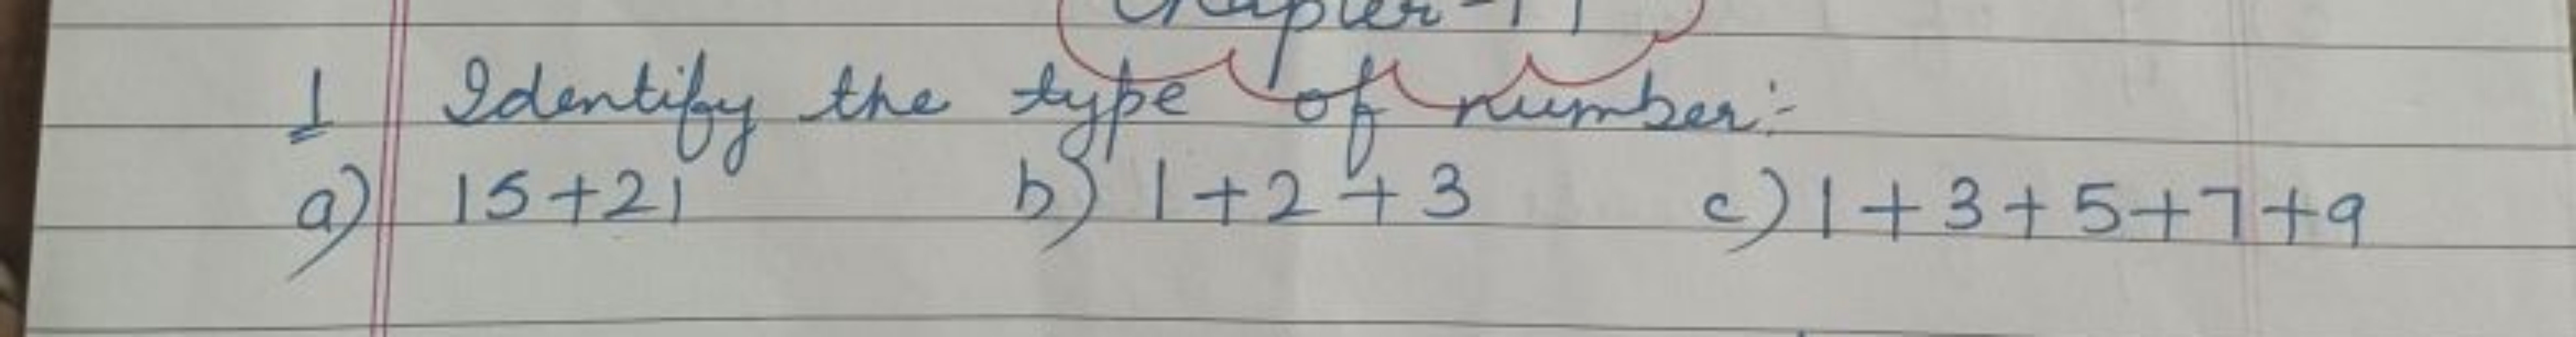 Chapter-11
1 Identify the type of number:-
a) 15+21 b) 1+2+3 c) 1+3+5+7+9